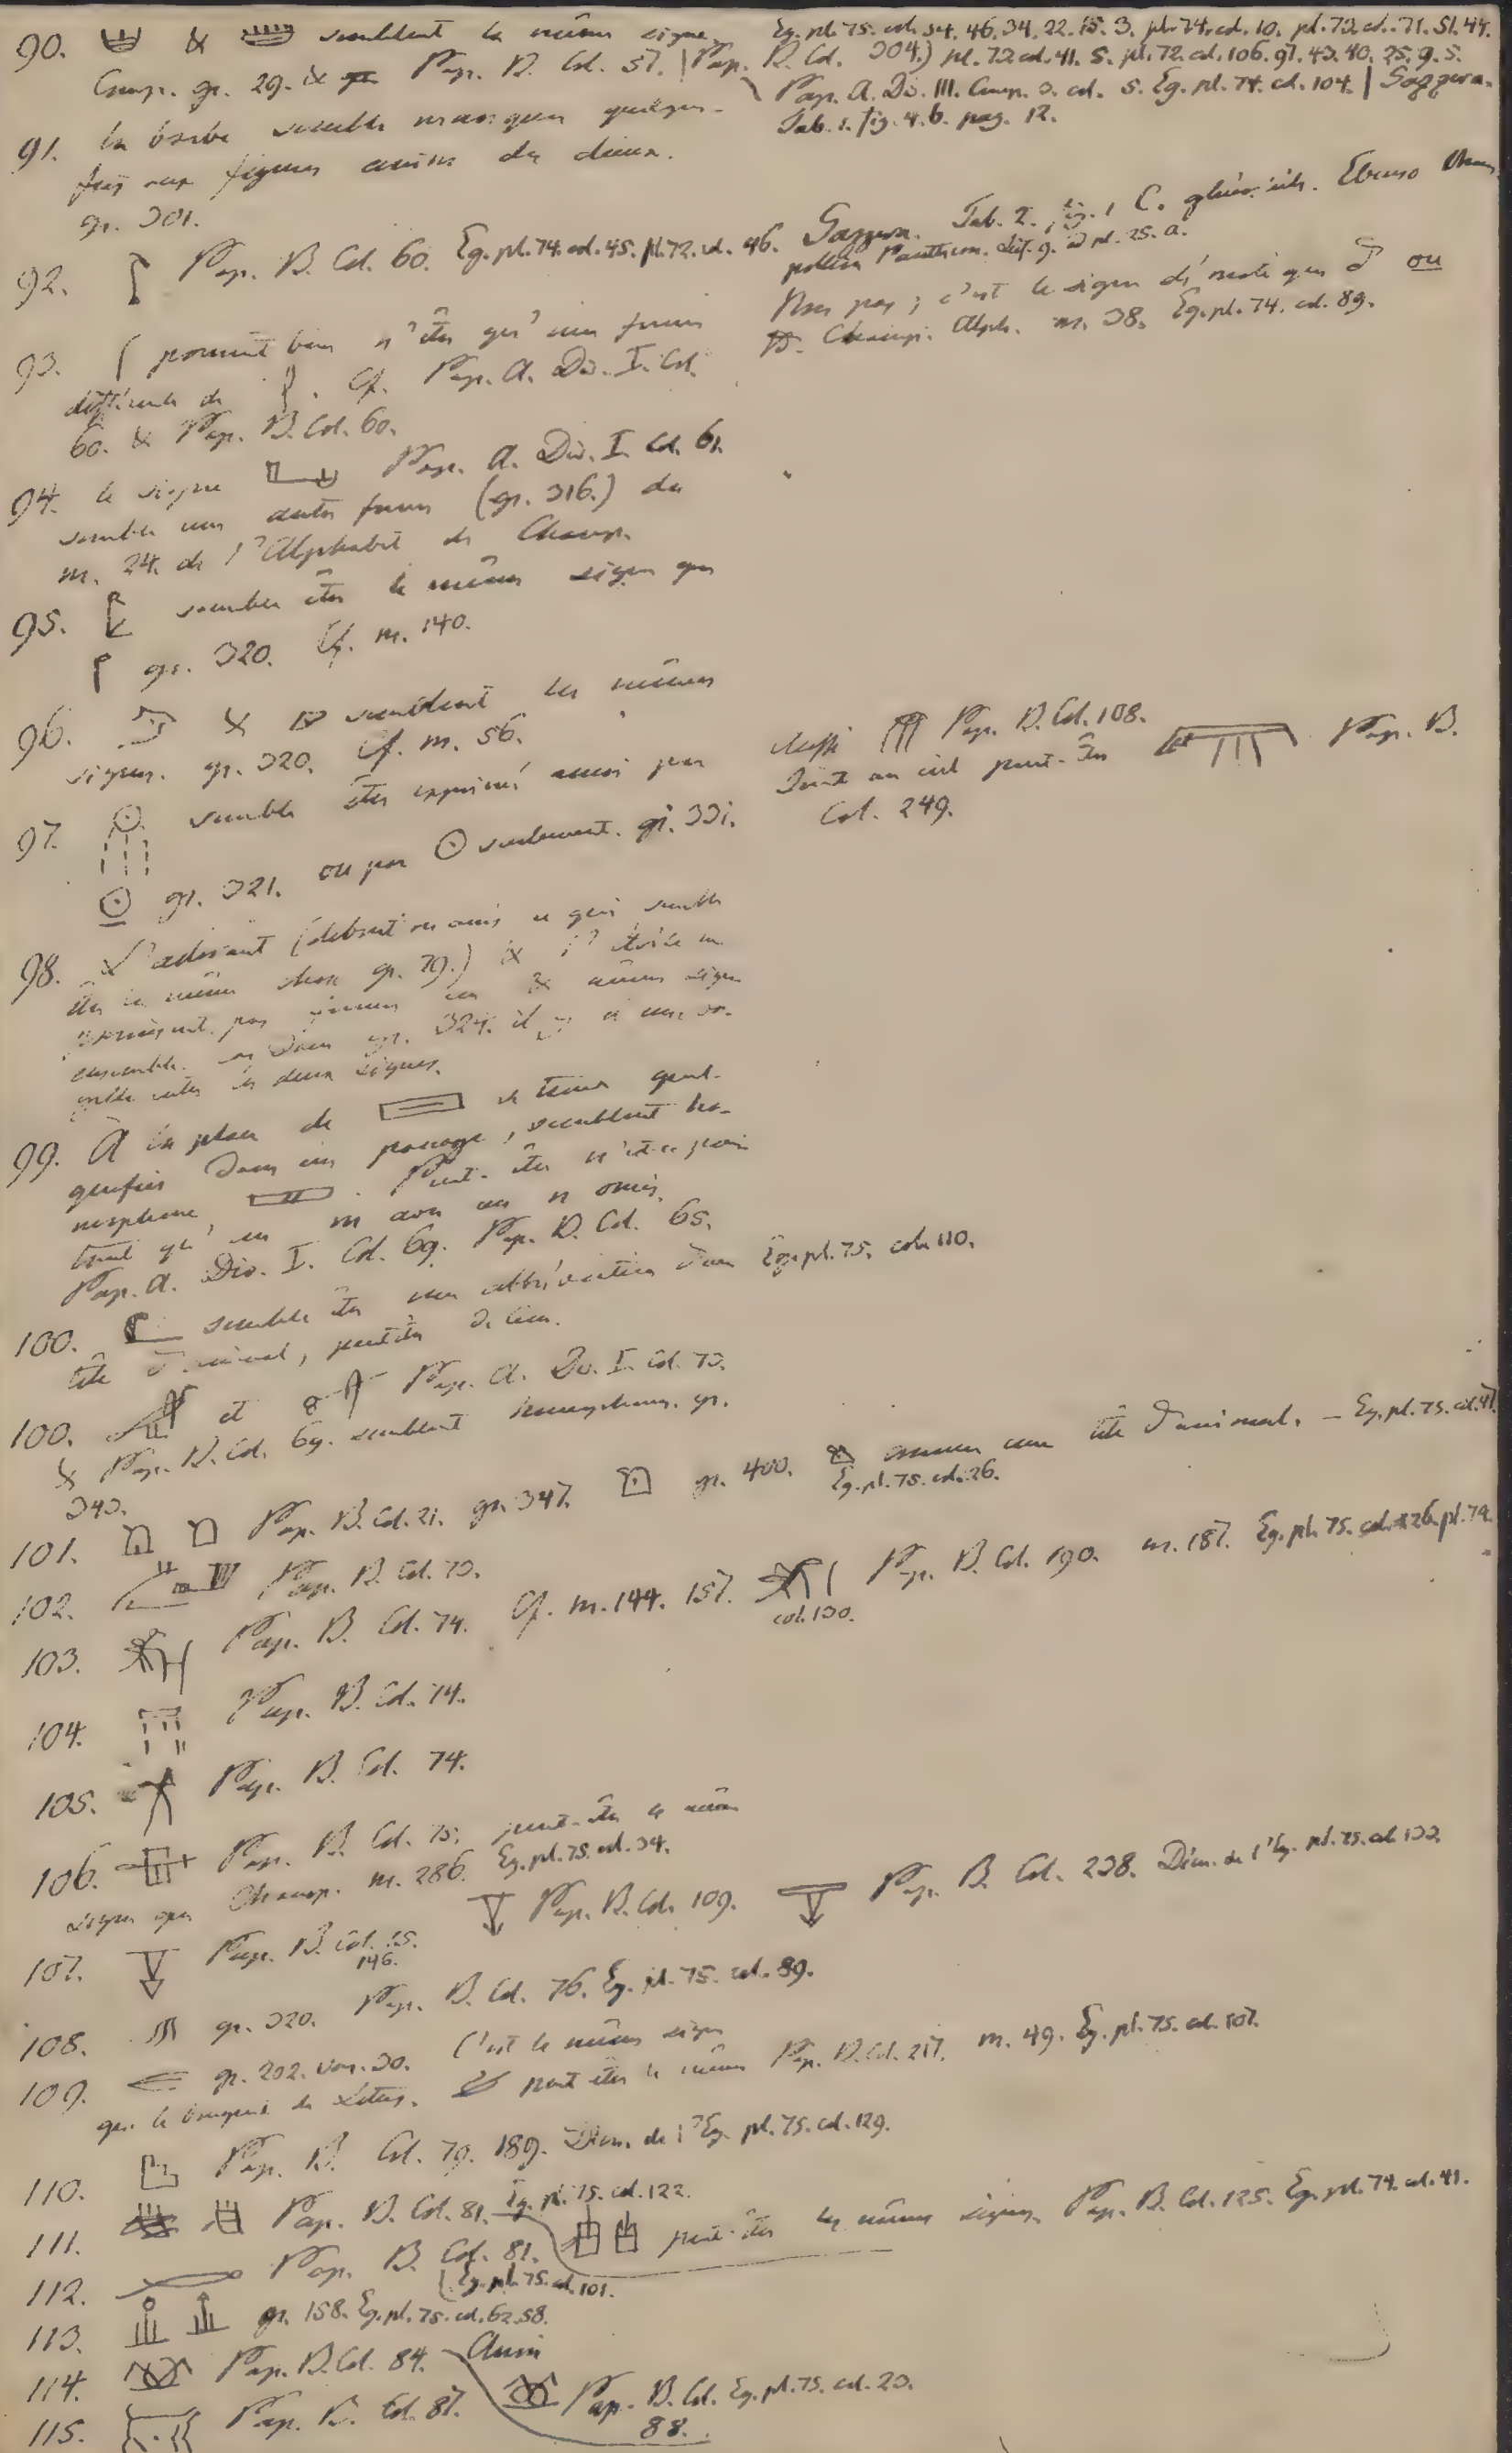 90. & semblent le même signe.
Comp. gr. 29. & Pap. B. Col. 57. | Pap. B. Col. 304.) pl. 72 col. 41. 5. pl. 72. col. 106. 97. 43. 40. 25. 9. 5.
Eg. pl. 75. col. 54. 46. 34. 22. 15. 3. pl. 74. col. 10. pl. 73. col. 71. 51. 44.
Pap. A. Div. III. Comp. 3. col. 5. Eg. pl. 74. col. 104. | Saggera.
Tab. 1. fig. 4. b. pag. 12.
91. la barbe semble manquer quelque-
fois aux figures assises de dieux.
gr. 301.
92. Pap. B. Col. 60. Eg. pl. 74. col. 45. pl. 72. col. 46. Tab. 2. fig. 1 C.
Pantheon. pl. 25. a.
93. pourrait bien n'être qu'une forme
différente de . Cf. Pap. A. Div. I. Col.
60. & Pap. B. Col. 60.
Non pas; c'est le signe ou
Champ. Alph. n. 38. Eg. pl. 74. col. 89.
94. le signe Pap. A. Div. I. Col. 61.
semble une autre forme (gr. 316.) du
n. 24. de l'Alphabet de Champ.
95. semble être le même signe que
gr. 320. Cf. n. 140.
96. & semblent les mêmes
signes. gr. 320. Cf. n. 56.
97. semble être exprimé aussi par
gr. 321. ou par seulement. gr. 331.
Aussi Pap. B. Col. 108.
Joint au ciel peut-être Pap. B.
Col. 249.
98. L'adorant (debout ou assis ce qui semble
être la même chose gr. 79.) & l'étoile ne
pas
ensemble. gr. 324. il y a
entre les deux signes.
99. A la place de se trouve quel-
quefois dans un passage, semblent ho-
mophone, . Peut-être n'est-ce pour
tout qu'un m avec un n omis.
Pap. A. Div. I. Col. 69. Pap. B. Col. 65.
100. semble être une abbréviation d'une Eg. pl. 75. col. 110.
tête d'animal, peut-être de lion.
100. et Pap. A. Div. I. Col. 73.
& Pap. B. Col. 69. semblent homophones. gr.
343.
101. Pap. B. Col. 21. gr. 347. gr. 400. comme une tête d'animal. — Eg. pl. 75. col. 47.
Eg. pl. 75. col. 26.
102. Pap. B. Col. 73.
103. Pap. B. Col. 74. Cf. n. 144. 157. Pap. B. Col. 190. n. 187. Eg. pl. 75. col. 126. pl. 74.
col. 130.
104. Pap. B. Col. 74.
105. Pap. B. Col. 74.
106. Pap. B. Col. 75. peut-être le même
signe que Champ. n. 286. Eg. pl. 75. col. 34.
107. Pap. B. Col. 75. Pap. B. Col. 109. Pap. B. Col. 238. Descr. de l'Eg. pl. 75. col. 133.
146.
108. gr. 320. Pap. B. Col. 76. Eg. pl. 75. col. 89.
109. gr. 202. var. 30. C'est le même signe
que le bouquet de Lotus. peut être le même Pap. B. Col. 217. n. 49. Eg. pl. 75. col. 107.
110. Pap. B. Col. 79. 189. Descr. de l'Eg. pl. 75. col. 129.
111. Pap. B. Col. 81. Eg. pl. 75. col. 122.
peut-être les mêmes signes. Pap. B. Col. 125. Eg. pl. 74. col. 41.
112. Pap. B. Col. 81.
Eg. pl. 75. col. 101.
113. gr. 158. Eg. pl. 75. col. 62. 58.
114. Pap. B. Col. 84. Aussi
Pap. B. Col. Eg. pl. 75. col. 23.
88.
115. Pap. B. Col. 87.